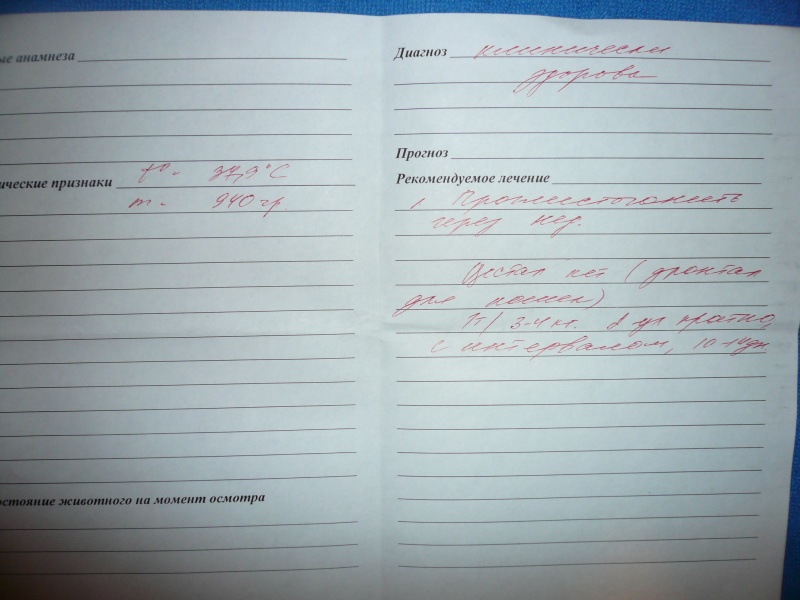 ые анамнеза
ические признаки t° - 37,9°C
m - 940 гр.
остояние животного на момент осмотра
Диагноз клинически
здорова
Прогноз
Рекомендуемое лечение
1. Проглистогонить
через нед.
Цестал кет (дронтал
для кошек)
1т/3-4 кг. кратно,
с интервалом, 10-14дн